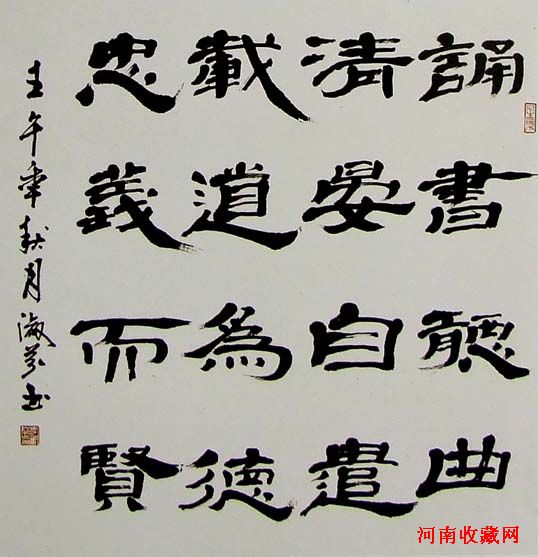 誦書聽曲
清晏自遣
載道為德
忠義而賢
壬午年秋月淑芬书
河南收藏网